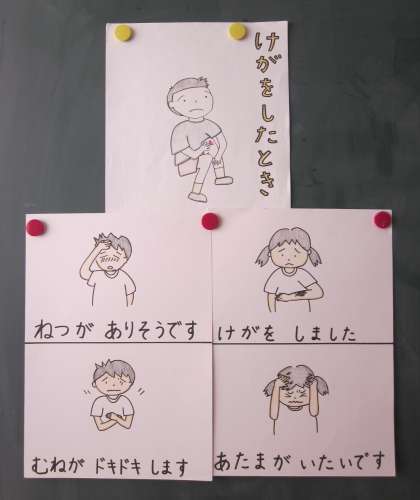 けがをしたとき
ねつが ありそうです
けがを しました
むねが ドキドキ します
あたまが いたいです